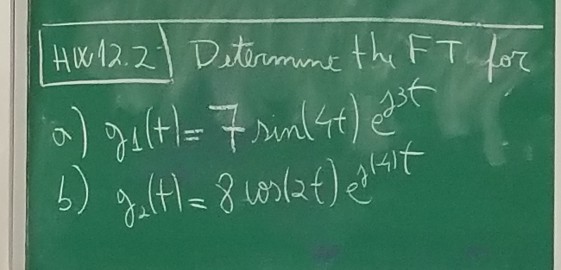 HW12.2 Determine the FT for
a) g₁(t) = 7 sin(4t) e^{j3t}
b) g₂(t) = 8 cos(2t) e^{j(4)t}